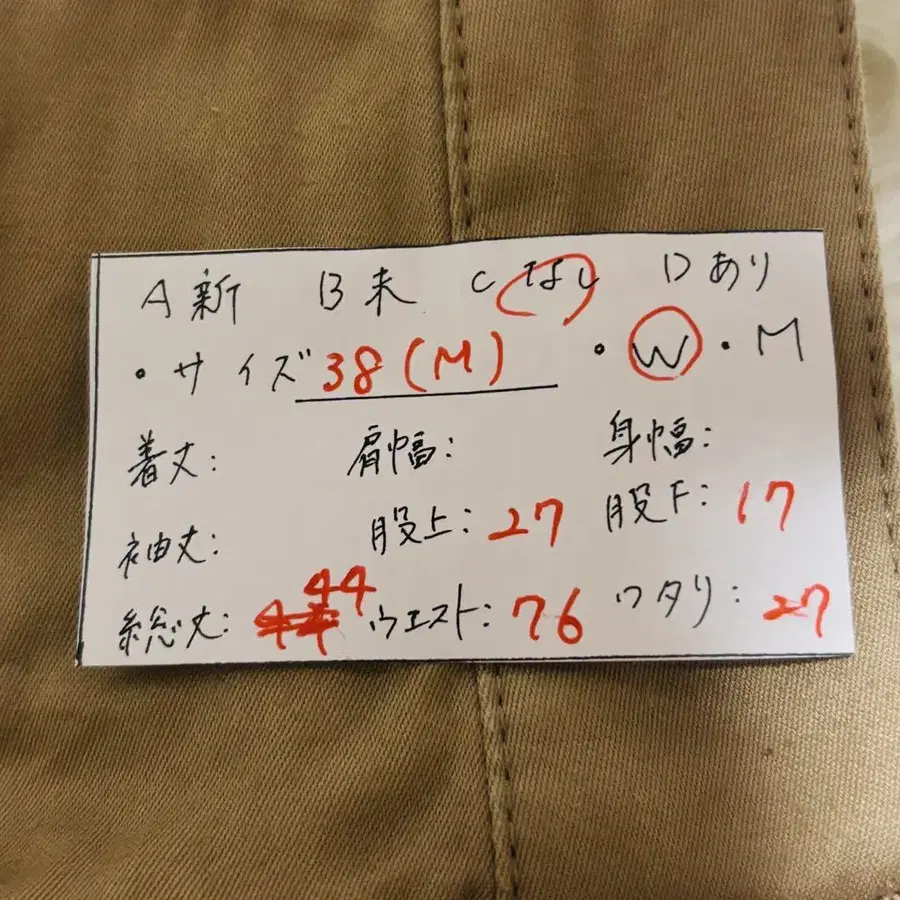 A 新 B 未 C なし D あり
・サイズ 38(M) ・W・M
着丈: 肩幅: 身幅:
袖丈: 股上: 27 股下: 17
総丈: 44 ウエスト: 76 ワタリ: 27